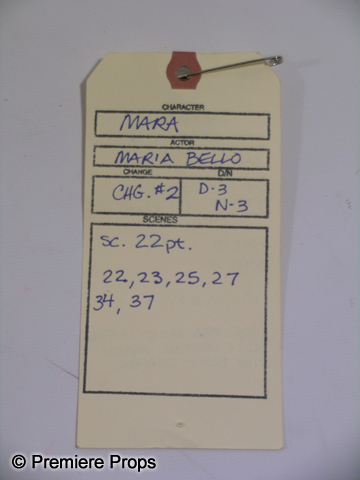 CHARACTER
MARA
ACTOR
MARIA BELLO
CHANGE D/N
CHG. #2 D-3
N-3
SCENES
SC. 22pt.
22, 23, 25, 27
34, 37
© Premiere Props